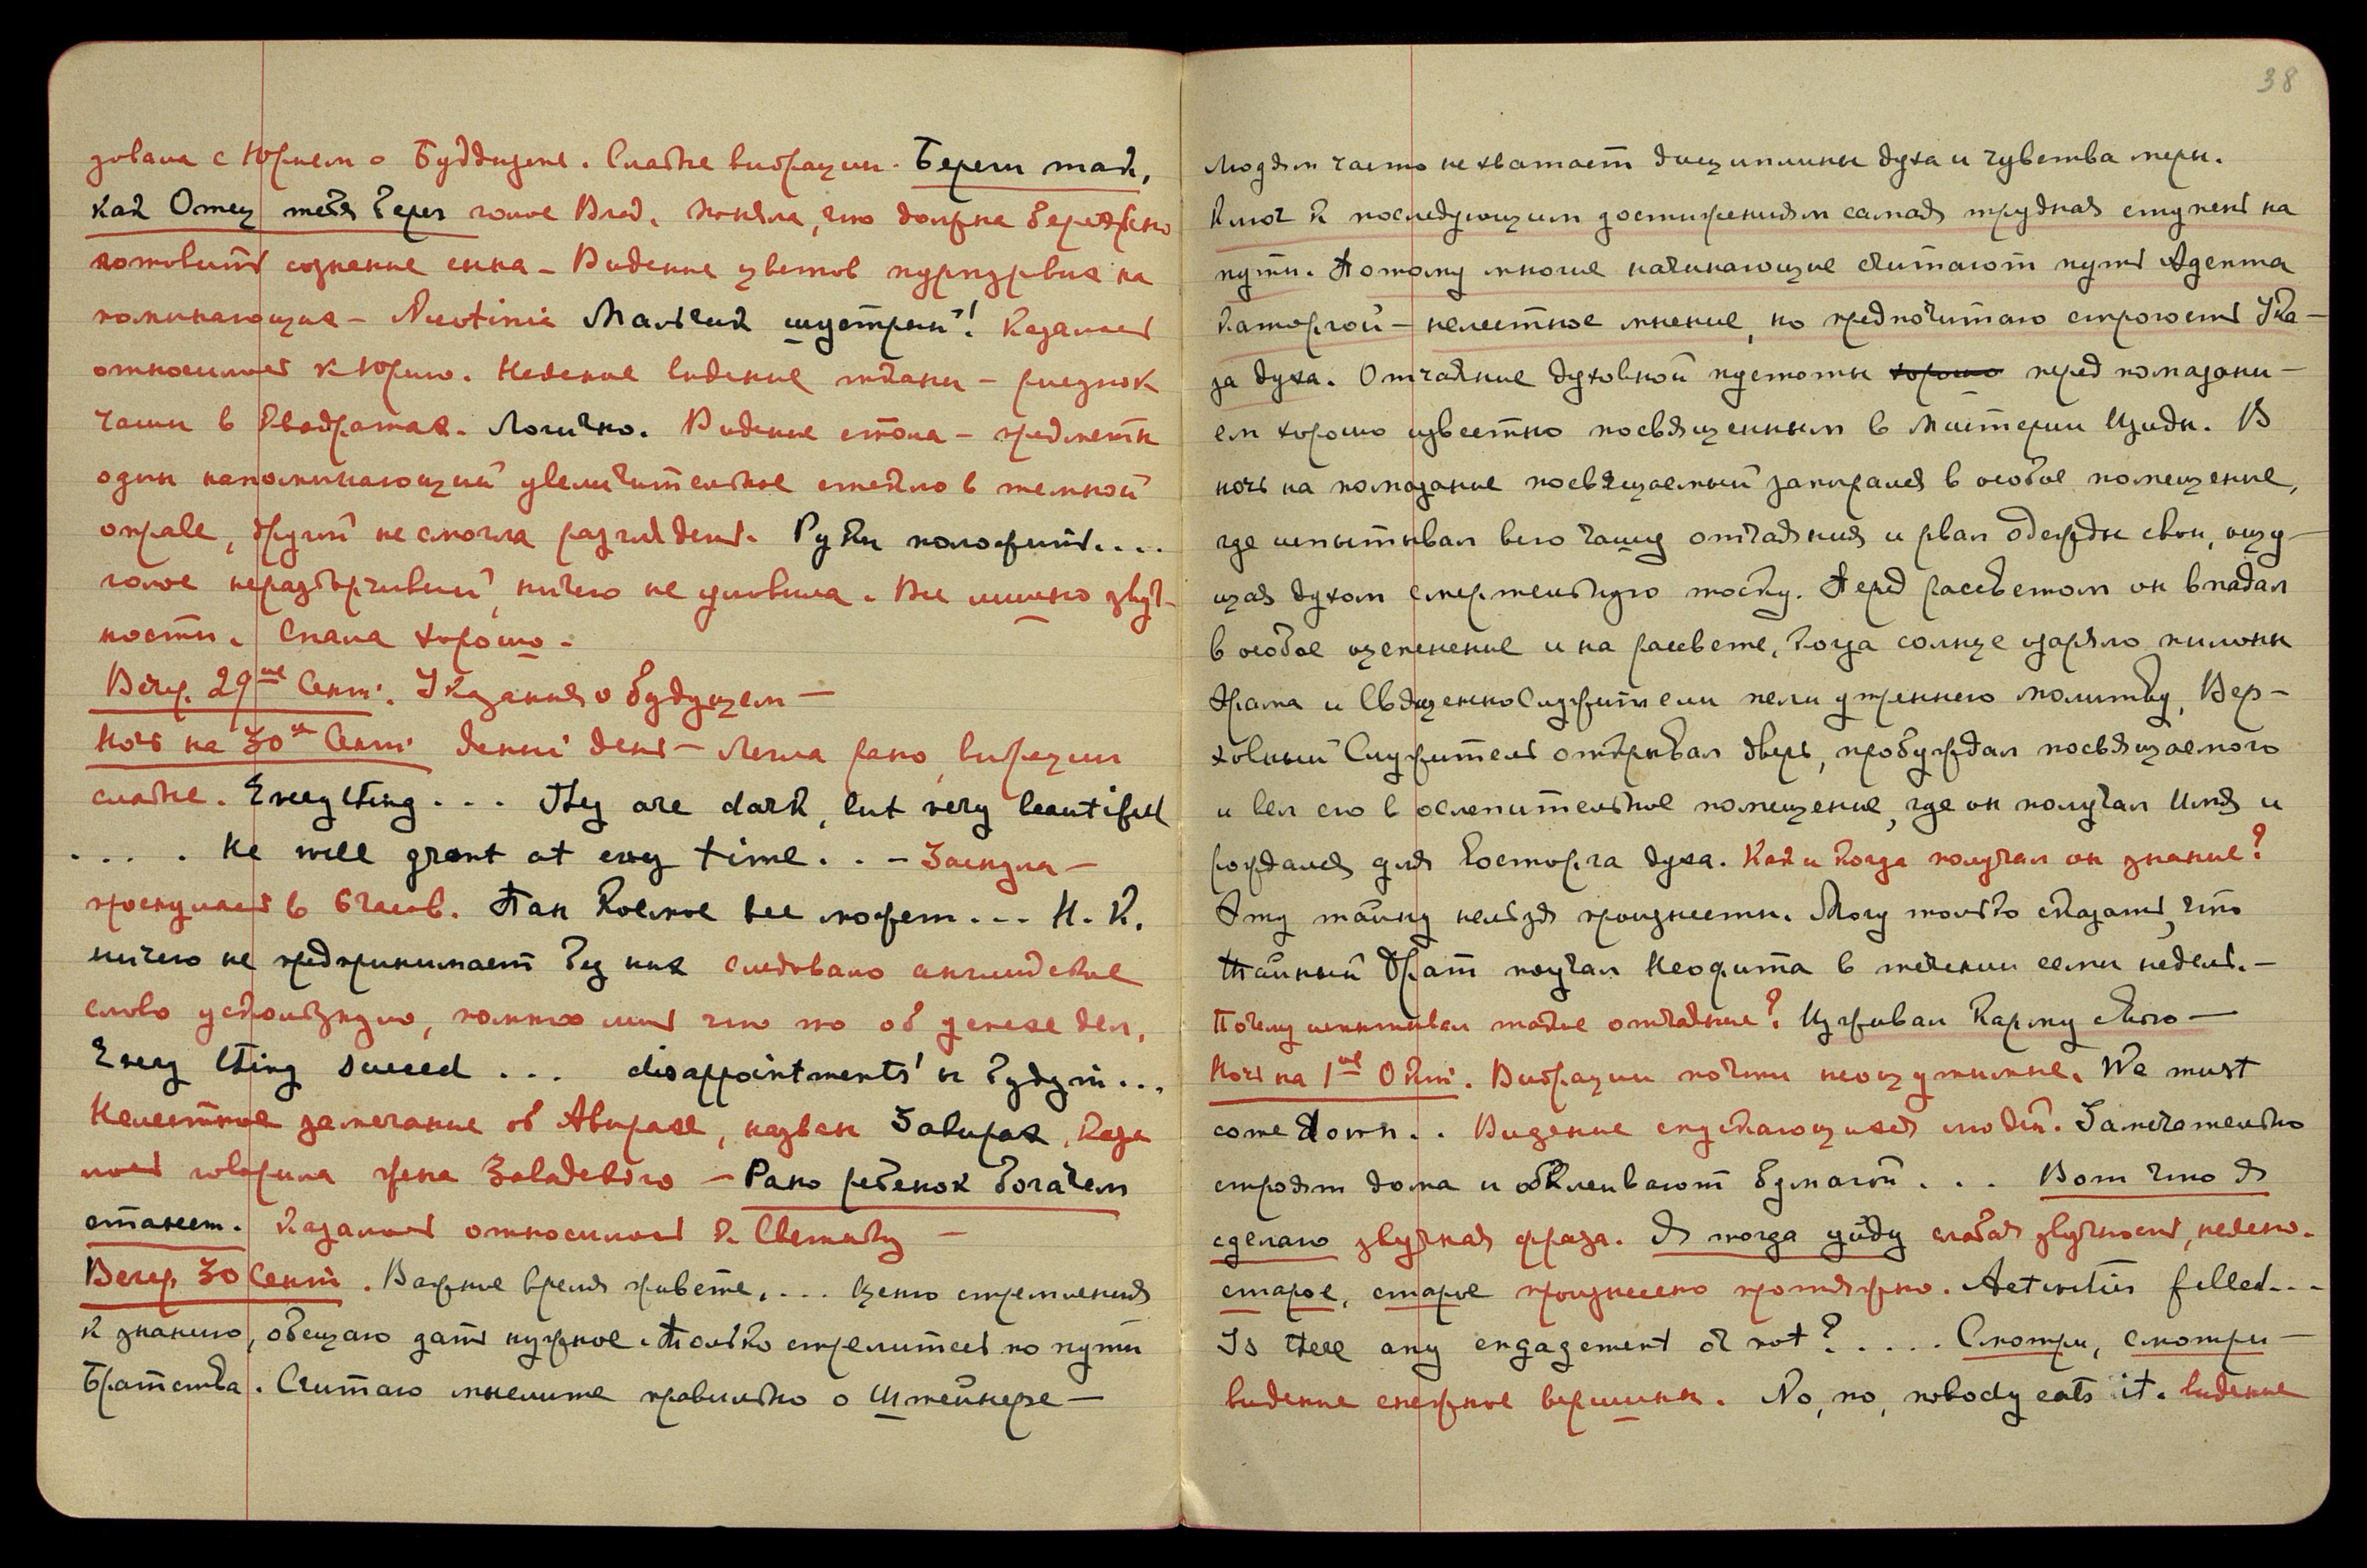 зовала с Юрием о Буддизме. Слабые вибрации. Береги так,
как Отец тебя берег голос Влад. поняла, что должна бережно
готовить сознание сына – Видение цветов пурпуровых на
поминающих – Nicotinia Мальчик шустрый! Казалось
относилось к Юрию. Неясное видение ткани – рисунок
чаши в квадратах. Логично. Видение стола – предметы
один напоминающий увеличительное стекло в темной
оправе, другой не смогла разглядеть. Руки положить....
голос неразборчивый, ничего не уловила. Все мимо звуч-
ности. Спала хорошо.
Вечер. 29ое Сент. Указания о будущем –
Ночь на 30ое Сент. день – Легла рано, вибрации
слабые. Everything... they are dark, but very beautiful
.... He will grant at every time.. – Заснула –
проснулась в 6 часов. Пан Коемое все может... Н. К.
ничего не предпринимает без них следовало английское
слово ускользнуло, помню лишь что то об успехе дел.
Every thing succeed ... disappointments' не будут...
Нелестное замечание об Авирахе, назван Завирах, Каза
лось говорила жена Завадского – Рано ребенок богачем
станет. Казалось относилось к Светику –
Вечер 30 Сент. Важное время живете,... Ценю стремления
к знанию, обещаю дать нужное. Только стремитесь по пути
Братства. Считаю мыслите правильно о Штейнере –
38
Людям часто не хватает дисциплины духа и чувства меры.
Ключ к последующим достижениям самая трудная ступень на
пути. Потому многие начинающие считают путь Адепта
Каторгой – нелестное мнение, но предпочитаю строгость Ука-
за духа. Отчаяние духовной пустоты хорошо перед помазани-
ем хорошо известно посвященным в Мистерии Изиды. В
ночь на помазание посвящаемый запирался в особое помещение,
где испытывал всю чашу отчаяния и рвал одежды свои, ощу-
щая духом смертельную тоску. Перед рассветом он впадал
в особое оцепенение и на рассвете, когда солнце озаряло пилоны
Храма и СвященноСлужители пели утреннюю молитву, Вер-
ховный Служитель открывал дверь, пробуждал посвящаемого
и вел его в ослепительное помещение, где он получал Имя и
рождался для Восторга духа. Как и когда получал он знание?
Эту тайну нельзя произнести. Могу только сказать, что
тайный Брат поучал Неофита в течении семи недель. –
Почему испытывал такое отчаяние? Изживал Карму свою –
Ночь на 1ое Окт. Вибрации почти неощутимые. We must
come down.. Видение спускающихся людей. Замечательно
строят дома и обклеивают бумагой ... Вот что я
сделаю звучная фраза. Я тогда уйду слабая звучность, неясно.
старое, старое произнесено протяжно. Activities filled...
Is there any engagement or not?..... Смотри, смотри –
видение снежные вершины. No, no, nobody eats it. видение